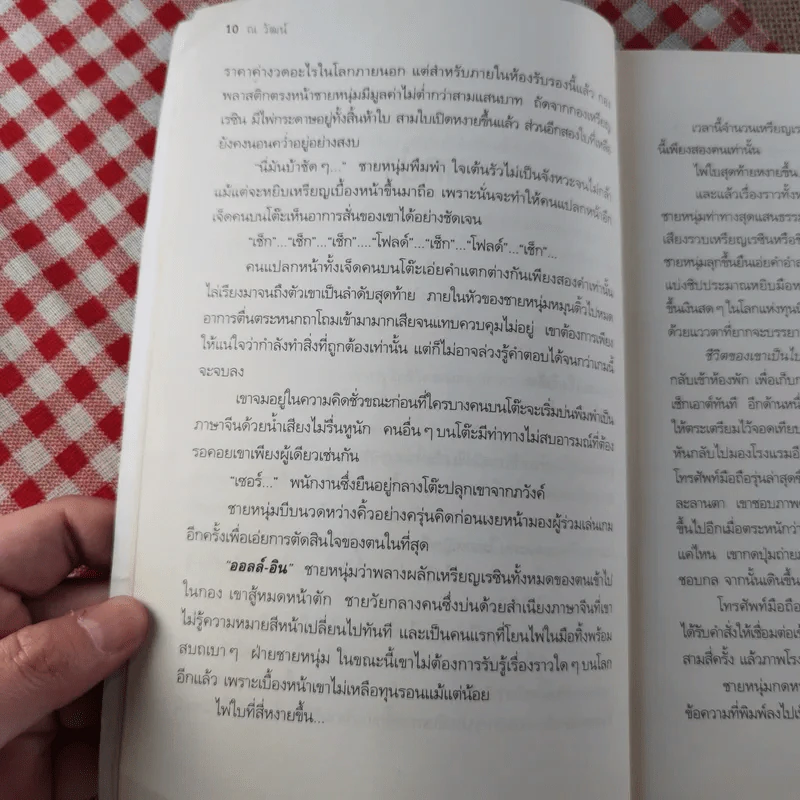 10 ณ วัฒน์
ราคาค่างวดอะไรในโลกภายนอก แต่สำหรับภายในห้องรับรองนี้แล้ว กอง
พลาสติกตรงหน้าชายหนุ่มมีมูลค่าไม่ต่ำกว่าสามแสนบาท ถัดจากกองเหรียญ
เรซิน มีไพ่กระดาษอยู่ทั้งสิ้นห้าใบ สามใบเปิดหงายขึ้นแล้ว ส่วนอีกสองใบที่เหลือ
ยังคงนอนคว่ำอยู่อย่างสงบ
"นี่มันบ้าชัด ๆ..." ชายหนุ่มพึมพำ ใจเต้นรัวไม่เป็นจังหวะจนไม่กล้า
แม้แต่จะหยิบเหรียญเบื้องหน้าขึ้นมาถือ เพราะนั่นจะทำให้คนแปลกหน้าอีก
เจ็ดคนบนโต๊ะเห็นอาการสั่นของเขาได้อย่างชัดเจน
"เช็ก"..."เช็ก"..."เช็ก"...."โฟลด์"..."เช็ก"..."โฟลด์"..."เช็ก"...
คนแปลกหน้าทั้งเจ็ดคนบนโต๊ะเอ่ยคำแตกต่างกันเพียงสองคำเท่านั้น
ไล่เรียงมาจนถึงตัวเขาเป็นลำดับสุดท้าย ภายในหัวของชายหนุ่มหมุนติ้วไปหมด
อาการตื่นตระหนกถาโถมเข้ามามากเสียจนแทบควบคุมไม่อยู่ เขาต้องการเพียง
ให้แน่ใจว่ากำลังทำสิ่งที่ถูกต้องเท่านั้น แต่ก็ไม่อาจล่วงรู้คำตอบได้จนกว่าเกมนี้
จะจบลง
เขาจมอยู่ในความคิดชั่วขณะก่อนที่ใครบางคนบนโต๊ะจะเริ่มบ่นพึมพำเป็น
ภาษาจีนด้วยน้ำเสียงไม่รื่นหูนัก คนอื่น ๆ บนโต๊ะมีท่าทางไม่สบอารมณ์ที่ต้อง
รอคอยเขาเพียงผู้เดียวเช่นกัน
"เซอร์..." พนักงานซึ่งยืนอยู่กลางโต๊ะปลุกเขาจากภวังค์
ชายหนุ่มบีบนวดหว่างคิ้วอย่างครุ่นคิดก่อนเงยหน้ามองผู้ร่วมเล่นเกม
อีกครั้งเพื่อเอ่ยการตัดสินใจของตนในที่สุด
"ออลล์-อิน" ชายหนุ่มว่าพลางผลักเหรียญเรซินทั้งหมดของตนเข้าไป
ในกอง เขาสู้หมดหน้าตัก ชายวัยกลางคนซึ่งบ่นด้วยสำเนียงภาษาจีนที่เขา
ไม่รู้ความหมายสีหน้าเปลี่ยนไปทันที และเป็นคนแรกที่โยนไพ่ในมือทิ้งพร้อม
สบถเบา ๆ ฝ่ายชายหนุ่ม ในขณะนี้เขาไม่ต้องการรับรู้เรื่องราวใด ๆ บนโลก
อีกแล้ว เพราะเบื้องหน้าเขาไม่เหลือทุนรอนแม้แต่น้อย
ไพ่ใบที่สี่หงายขึ้น...
เวลานี้จำนวนเหรียญเร
นี้เพียงสองคนเท่านั้น
ไพ่ใบสุดท้ายหงายขึ้น
และแล้วเรื่องราวทั้งห
ชายหนุ่มทำทางสุดแสนธรรม
เสียงรวบเหรียญเรซินหรือชิ
ชายหนุ่มลุกขึ้นยืนเอ่ยคำอำล
แบ่งชิปประมาณหยิบมือห
ขึ้นเงินสด ๆ ในโลกแห่งทุนนิ
ด้วยแววตาที่ยากจะบรรยา
ชีวิตของเขาเป็นไป
กลับเข้าห้องพัก เพื่อเก็บก
เช็กเอาต์ทันที อีกด้านหนึ่
ให้ตระเตรียมไว้จอดเทียบ
หันกลับไปมองโรงแรมอี
โทรศัพท์มือถือรุ่นล่าสุดขึ้
ละลานตา เขาชอบภาพ
ขึ้นไปอีกเมื่อตระหนักว่า
แค่ไหน เขากดปุ่มถ่ายภ
ชอบกล จากนั้นเดินขึ้น
โทรศัพท์มือถือ
ได้รับคำสั่งให้เชื่อมต่อเข้
สามสี่ครั้ง แล้วภาพโรง
ชายหนุ่มกดห
ข้อความที่พิมพ์ลงไปเ